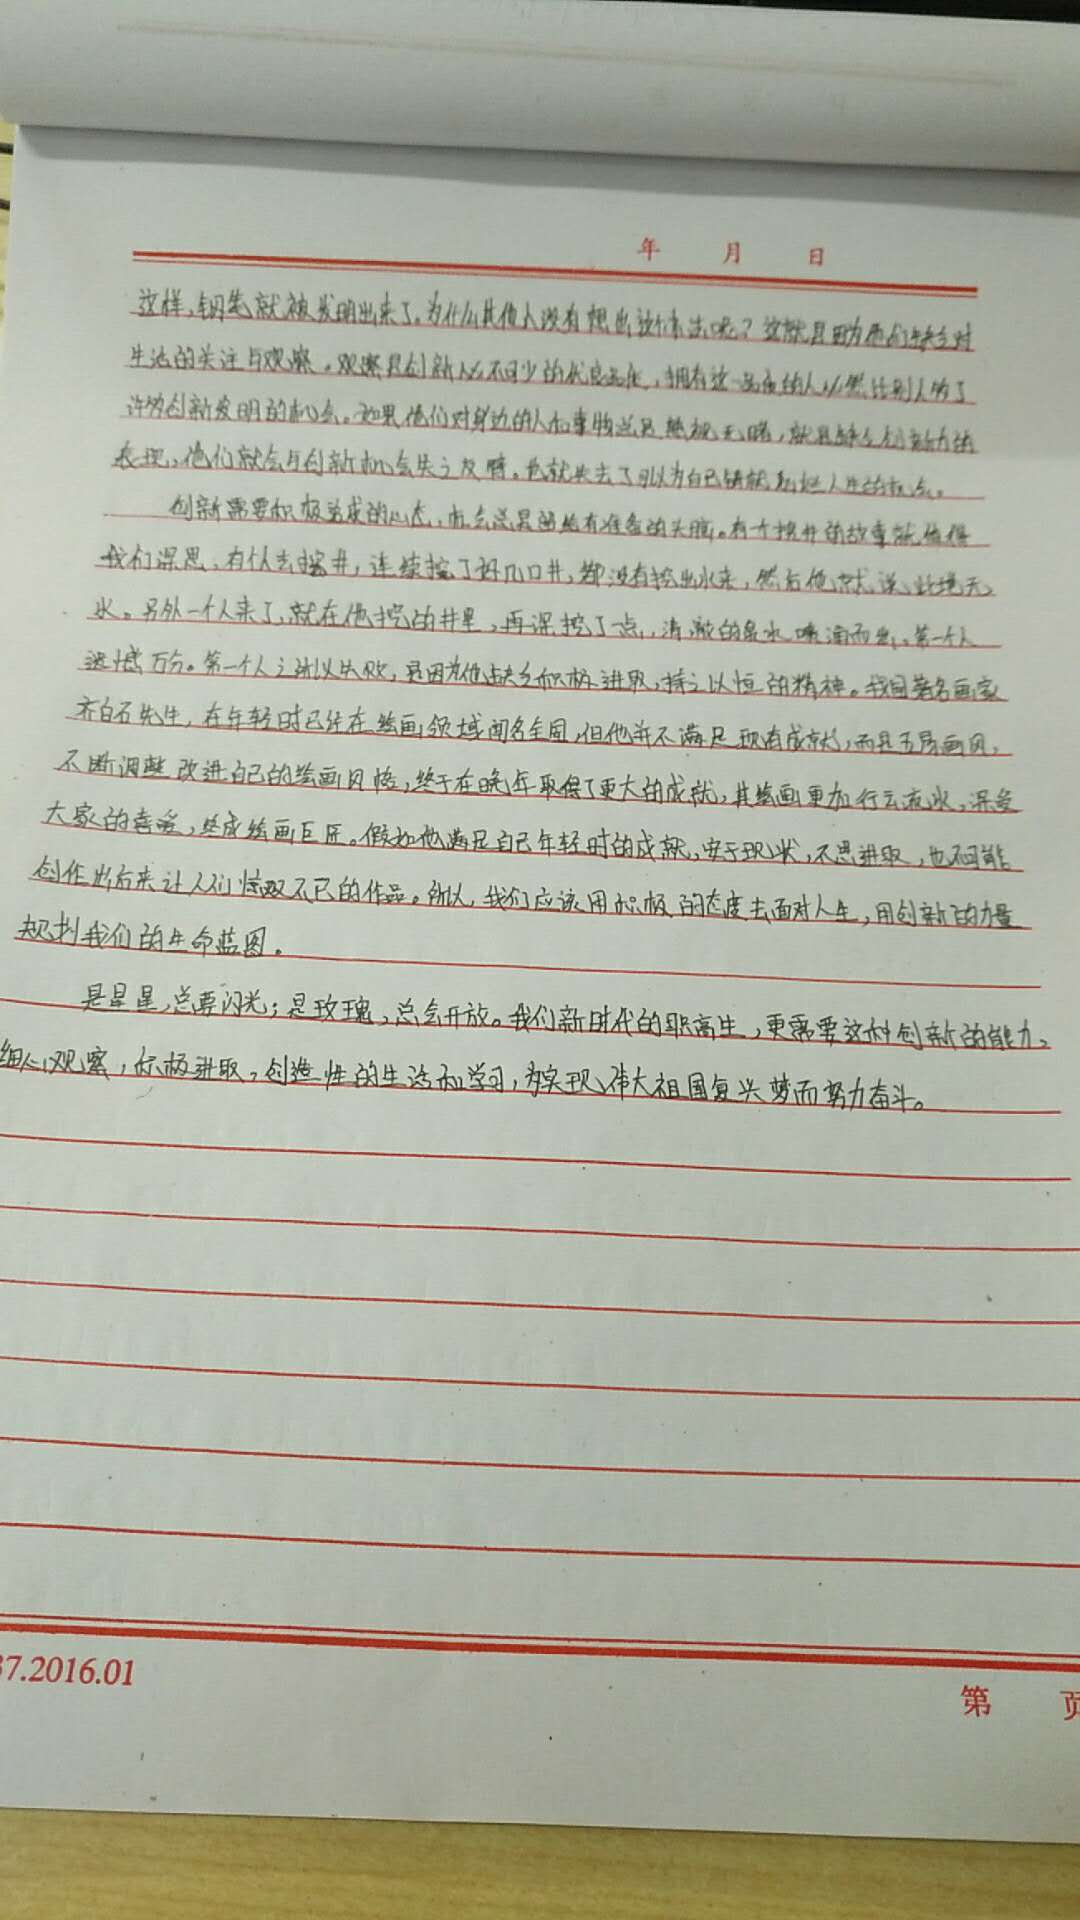 年 月 日
这样,钢笔就被发明出来了。为什么其他人没有想出这个办法呢?这就是因为他们缺乏对
生活的关注与观察。观察是创新人必不可少的优良品质,拥有这一品质的人必然比别人多了
许多创新发明的机会。如果他们对身边的人和事物总是熟视无睹,就是缺乏创新力的
表现,他们就会与创新机会失之交臂。也就失去了可以为自己铸就人生的机会。
创新需要积极的心态,机会总是留给有准备的头脑。有个挖井的故事就值得
我们深思,有个人去挖井,连续挖了好几口井,都没有挖出水来,然后他就说此境无
水。另外一个人来了,就在他挖的井里,再深挖了一点,清澈的泉水喷涌而出。第一个人
遗憾万分。第一个人之所以失败,是因为他缺乏积极进取,持之以恒的精神。我国著名画家
齐白石先生,在年轻时已经在绘画领域闻名全国,但他并不满足现有成就,而是五易画风,
不断调整改进自己的绘画风格,终于在晚年取得了更大的成就,其绘画更加行云流水,深受
大家的喜爱,终成绘画巨匠。假如他满足自己年轻时的成就,安于现状,不思进取,也不可能
创作出后来让人们惊叹不已的作品。所以,我们应该用积极的态度去面对人生,用创新的力量
规划我们的生命蓝图。
是星星,总要闪光;是玫瑰,总会开放。我们新时代的职高生,更需要这种创新的能力。
细心观察,积极进取,创造性的生活和学习,为实现伟大祖国复兴梦而努力奋斗。
37.2016.01
第 页